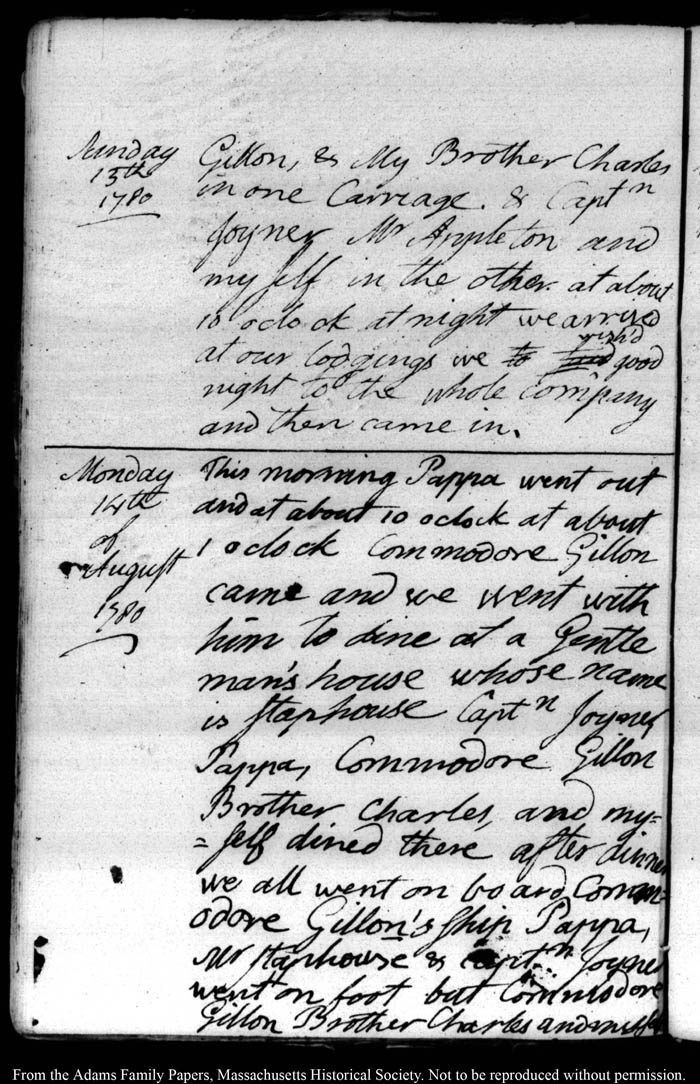 Sunday
13th
1780
Gillon, & My Brother Charles
in one Carriage. & Captn
Joyner Mr Appleton and
my self in the other. at about
10 oclock at night we arrived
at our lodgings we to wish'd good
night to the whole company
and then came in.
Monday
14th
of
August
1780
This morning Pappa went out
and at about 10 oclock at about
1 oclock Commodore Gillon
came and we went with
him to dine at a Gentle
man's house whose name
is Staphouse Captn Joyner
Pappa, Commodore Gillon
Brother Charles, and my=
=self dined there after dinner
we all went on board Comm=
odore Gillon's ship Pappa,
Mr Staphouse & Captn Joyner
went on foot but Commodore
Gillon Brother Charles and myself
From the Adams Family Papers, Massachusetts Historical Society. Not to be reproduced without permission.